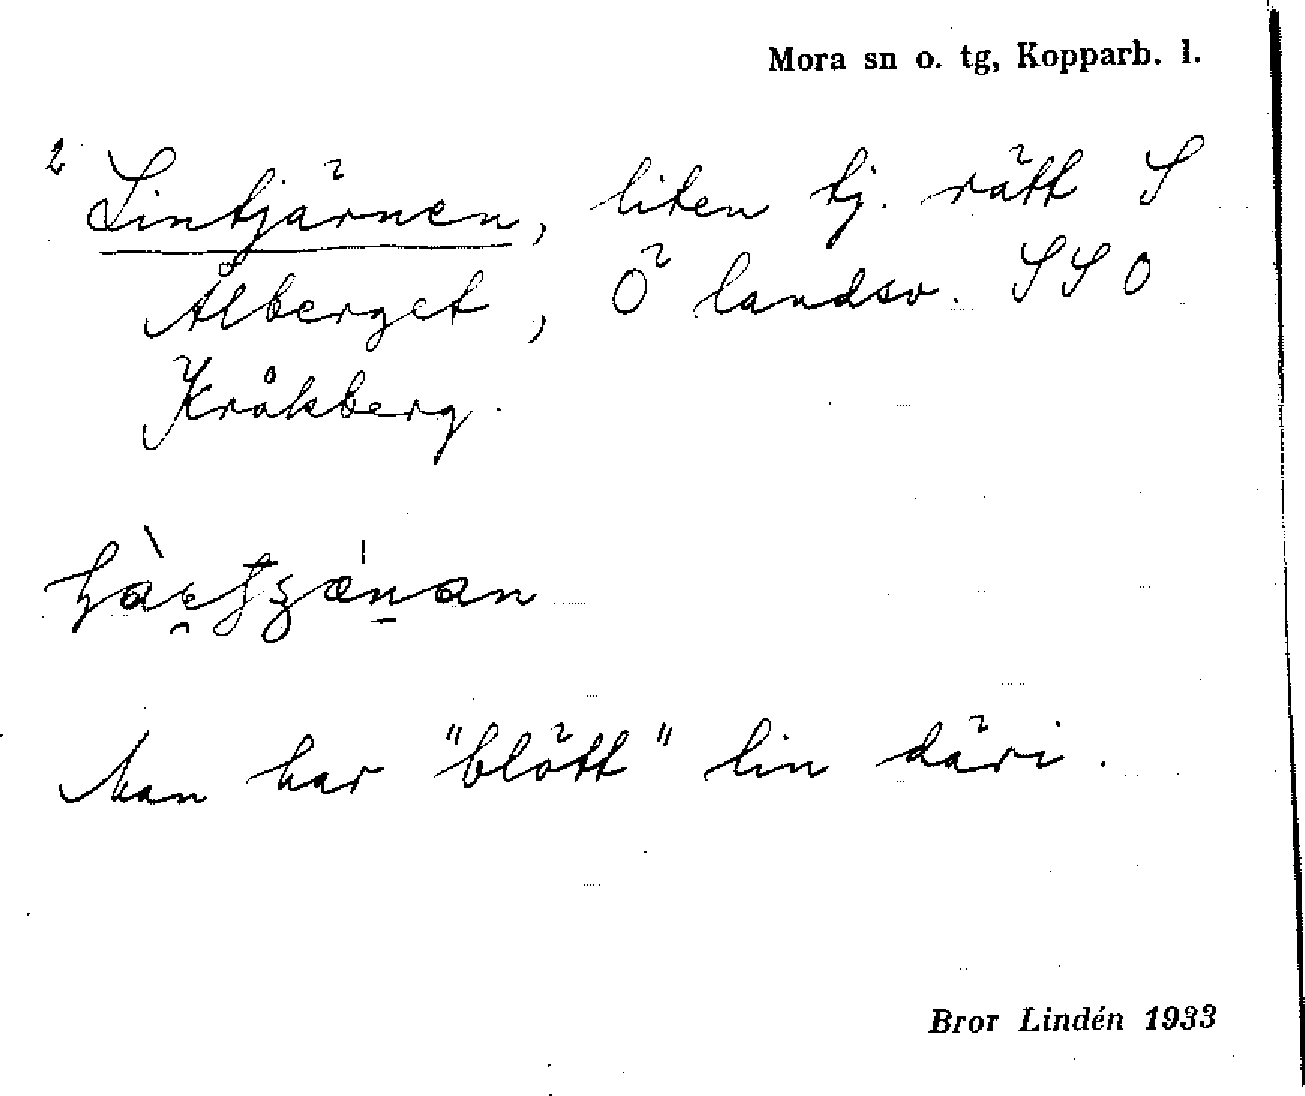 Mora sn o. tg, Kopparb. l.
2 Lintjärnen, liten tj. rätt S
Ålberget, Ö landsv. SSO
Kråkberg.
Man har "blött" lin däri.
Bror Lindén 1933